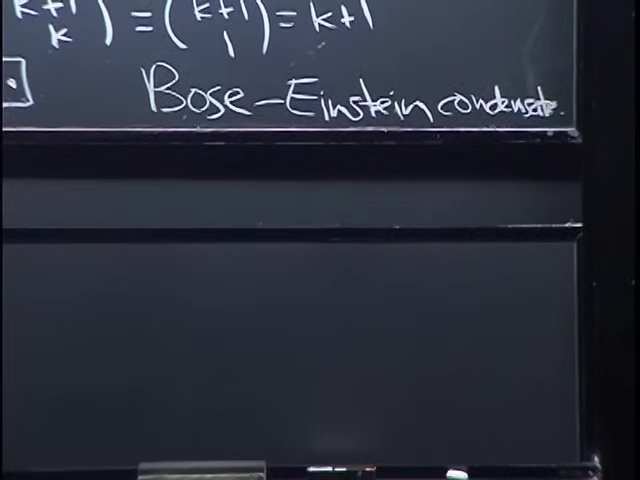 (k+1 k) = (k+1 1) = k+1
Bose-Einstein condensate.